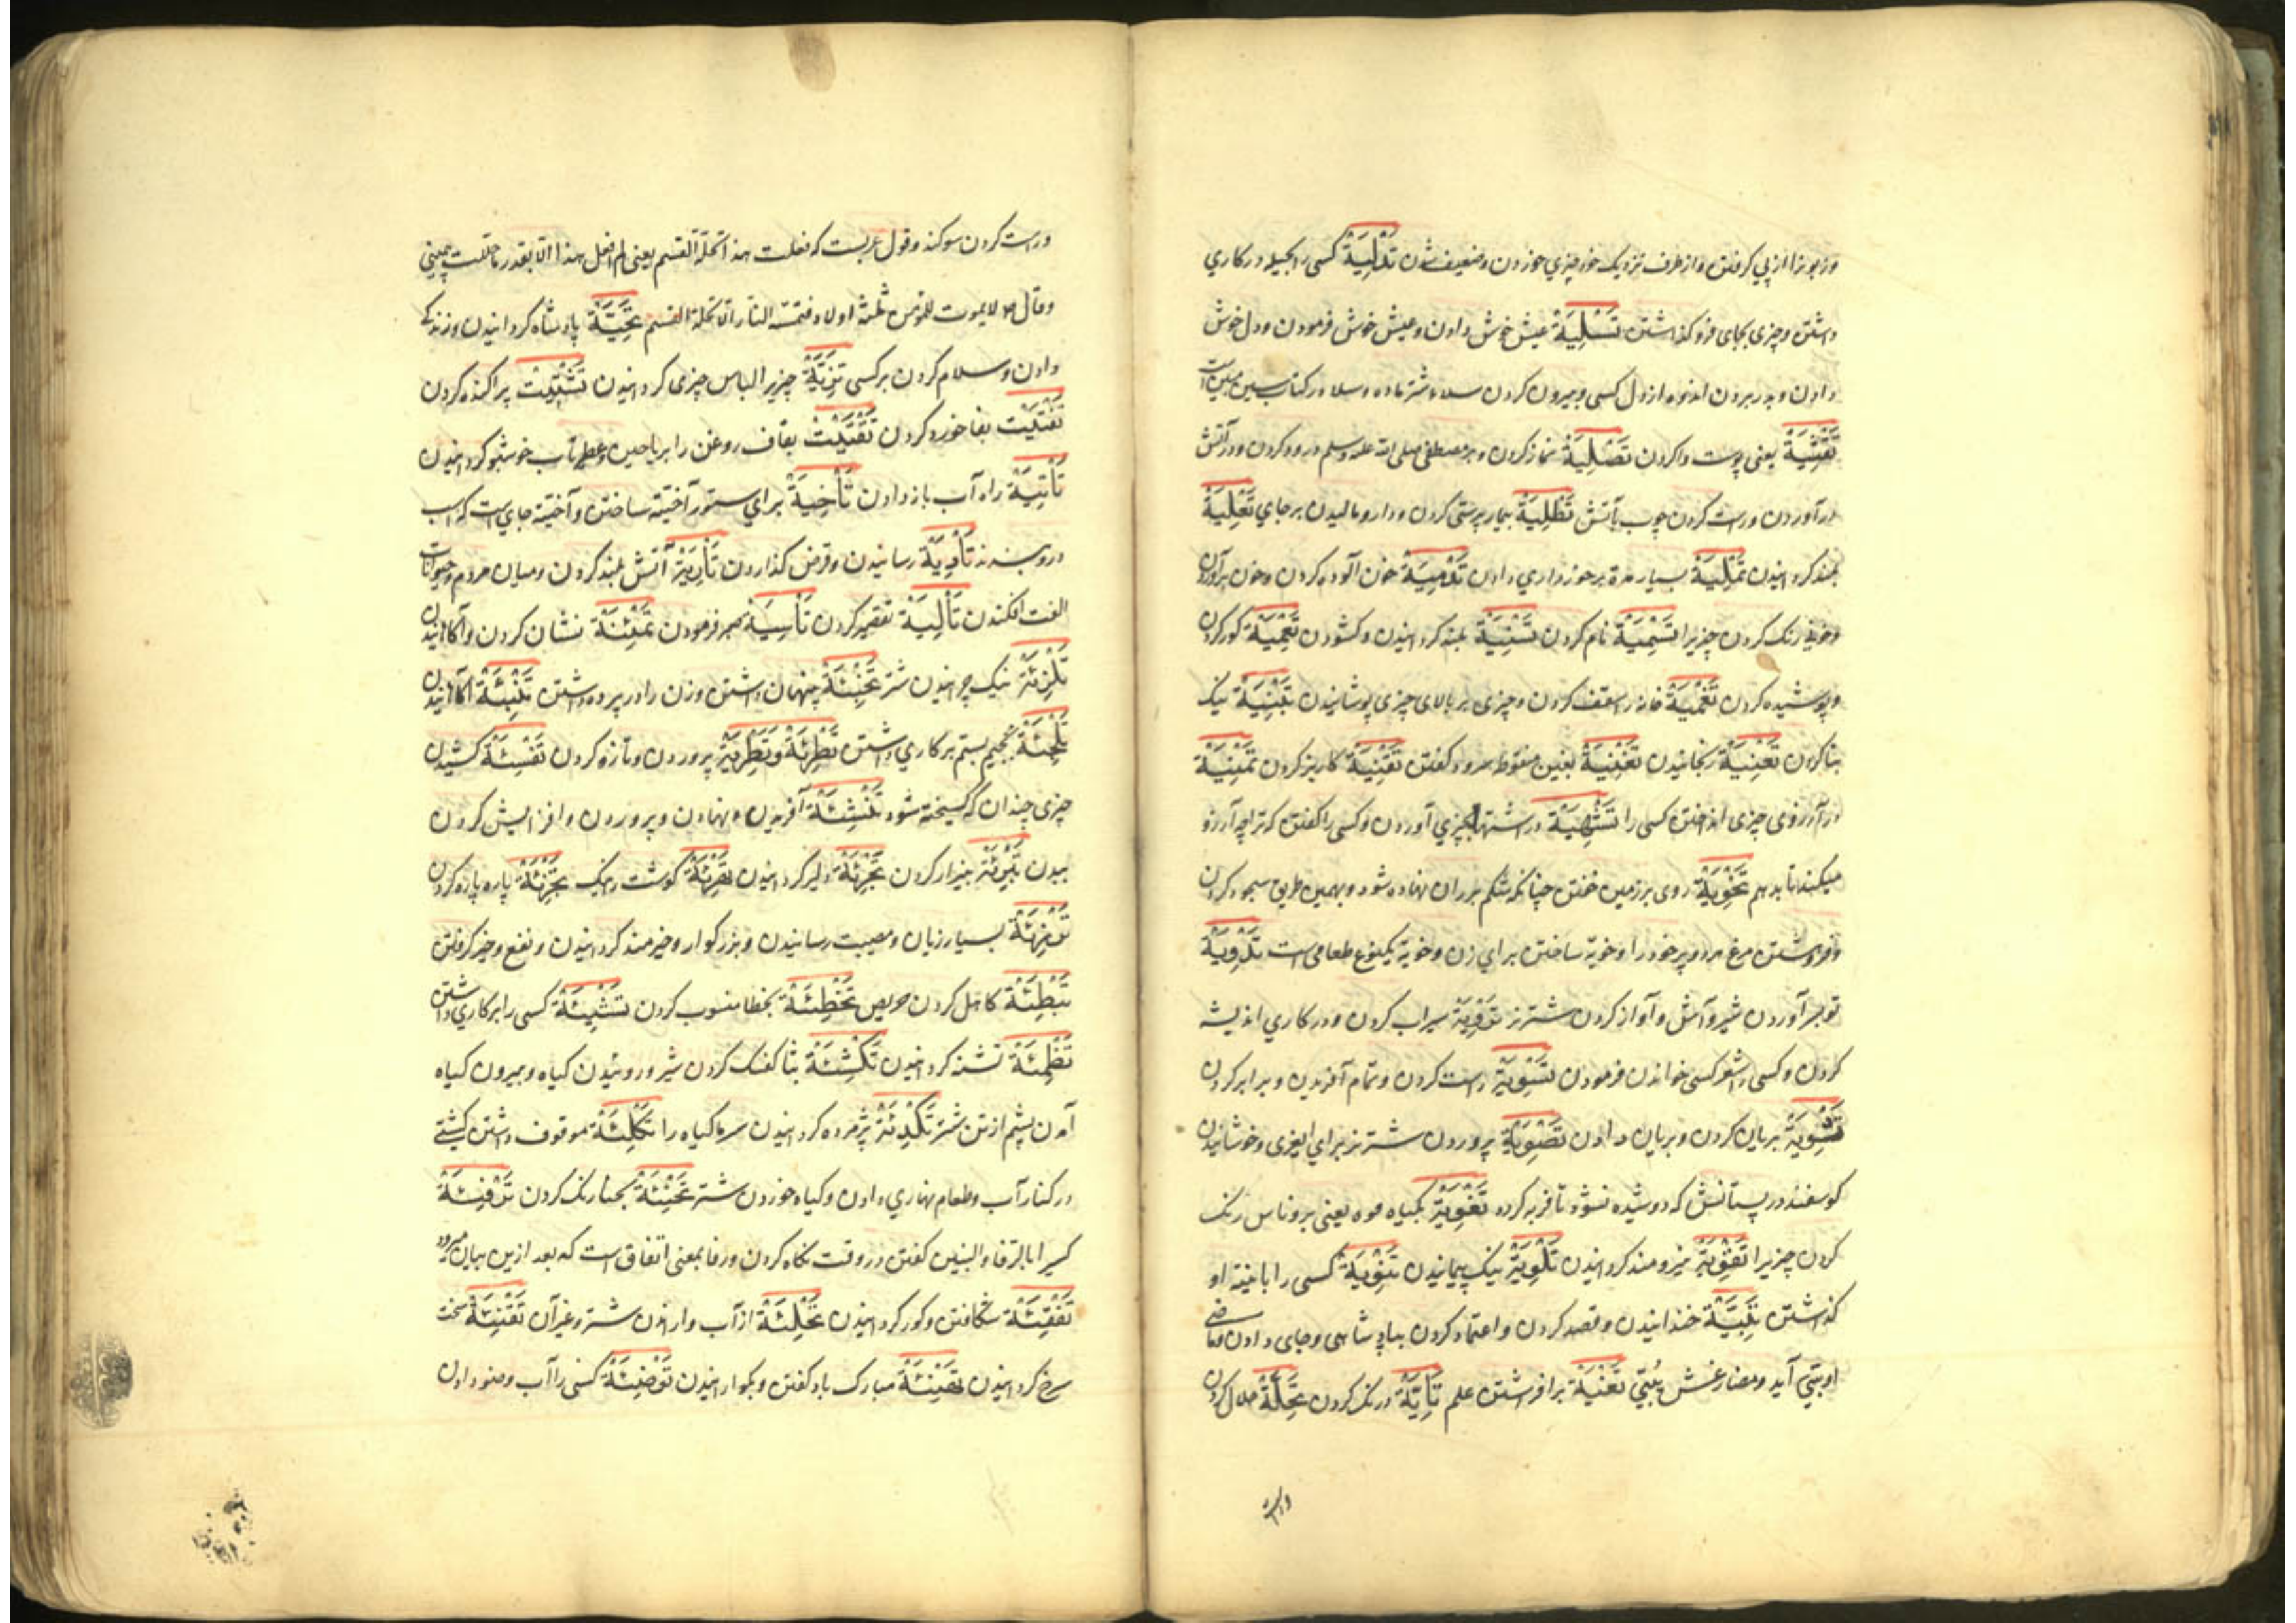 و از طرف نزدیک خود چیزی خوردن و ضعیف شدن تَدْلِیَةٌ کسی را بحیله در کاری
داشتن و چیزی بجای فرو گذاشتن تَسْلِیَةٌ عیش خوش دادن و عیش خوش فرمودن و دل خوش
دادن و بدر بردن اندوه از دل کسی و بیرون کردن سلاء شتر ماده و سلا در کتاب سین مبین است
تَقْثِیَةٌ یعنی پوست وا کردن تَصْلِیَةٌ نماز کردن و بر مصطفی صلی الله علیه وسلم درود کردن و در آتش
در آوردن و راست کردن چوب بآتش تَطْلِیَةٌ بیمار پرستی کردن و دارو مالیدن بر جای تَعْلِیَةٌ
بلند کردانیدن تَمْلِیَةٌ بسیار مدة برخورداری دادن تَدْمِیَةٌ خون آلوده کردن و خون برآوردن
و خونی رنک کردن چیزیرا تَسْمِیَةٌ نام کردن تَسْنِیَةٌ بلند کردانیدن و کشودن تَعْمِیَةٌ کور کردن
و پوشیده کردن تَغْمِیَةٌ خانه را سقف کردن و چیزی بر بالای چیزی پوشانیدن تَبْنِیَةٌ نیک
بنا کردن تَعْنِیَةٌ رنجانیدن تَغْنِیَةٌ بغین منقوط سرود کفتن تَقْنِیَةٌ کاریز کردن تَمْنِیَةٌ
در آرزوی چیزی انداختن کسی را تَشْهِیَةٌ در اشتهاء چیزی آوردن و کسی را کفتن که ترا چه آرزو
میکند تا بدهم تَخْوِیَةٌ روی بر زمین خفتن چنانکه شکم بر ران نهاده شود و بهمین طریق سجود کردن
و فروهشتن مرغ هر دو پر خود را و خویة ساختن برای زن و خویة یکنوع طعامی است تَدْوِیَةٌ
توبسر آوردن شیر و آش و آواز کردن شتر نر تَرْوِیَةٌ سیراب کردن و در کاری اندیشه
کردن و کسی را شعر کسی خواندن فرمودن تَسْوِیَةٌ راست کردن و تمام آفریدن و برابر کردن
تَشْوِیَةٌ بریان کردن و بریان دادن تَصْوِیَةٌ پروردن شتر نر برای ایغری و خوشانیدن
کوسفند در پستانش که دوشیده نشود تا فربه کردد تَفْوِیَةٌ بکیاه فوه یعنی بروناس رنک
کردن چیزیرا تَقْوِیَةٌ نیرومند کردانیدن تَلْوِیَةٌ نیک پیچانیدن تَنْوِیَةٌ کسی را با نیته او
کذاشتن تَبْیِیَةٌ خندانیدن و قصد کردن و اعتماد کردن بپادشاهی و جای دادن و ماضی
او بَیَّیَ آید و مضارعش یُبَیِّی تَغْیِیَةٌ برافرشتن علم تَأْیِیَةٌ درنک کردن تَحِلَّةٌ حلال کردن
و راست
و راست کردن سوکند و قول عربست که فعلت هذا تحلة القسم یعنی لم افعل هذا الا بقدر ما حللت یمینی
وقال لا یموت للمؤمن ثلثة اولاد فتمسه النار الا تحلة القسم تَحِیَّةٌ پادشاه کردانیدن و زندکی
دادن و سلام کردن بر کسی تَزِیَّةٌ چیزیرا لباس چیزی کردانیدن تَشْتِیْتٌ پراکنده کردن
تَفْتِیْتٌ بفا خورد کردن تَقْتِیْتٌ بقاف روغن را بریاحین و عطریات خوشبو کردانیدن
تَأْتِیَةٌ راه آب باز دادن تَأْخِیَةٌ برای ستور آخیة ساختن و آخیة جای است که اسب
درو بندند تَأْدِیَةٌ رسانیدن و قرض کذاردن تَأْرِیَةٌ آتش بلند کردن و میان مردم و حیوانات
الفت افکندن تَأْلِیَةٌ تقصیر کردن تَأْسِیَةٌ صبر فرمودن تَمْئِنَةٌ نشان کردن و آکاهانیدن
تَلْزِئَةٌ نیک چرانیدن شتر تَخْبِئَةٌ پنهان داشتن و زن را در پرده داشتن تَنْبِئَةٌ آکاهانیدن
تَلْجِئَةٌ بجیم بستم بر کاری داشتن تَطْرِئَةٌ و تَطْرِیَةٌ پروردن و تازه کردن تَفْسِئَةٌ کشیدن
چیزی چندان که کسیخته شود تَنْشِئَةٌ آفریدن و نهادن و پروردن و افزایش کردن
بیدن تَبْرِئَةٌ بیزار کردن تَجْرِئَةٌ دلیر کردانیدن تَهْرِئَةٌ کوشت تَجْزِئَةٌ پاره پاره کردن
تَرْزِئَةٌ بسیار زیان و مصیبت رسانیدن و بزرکوار و خیرمند کردانیدن و نفع و خیر کرفتن
تَبْطِئَةٌ کاهل کردن حریص تَخْطِئَةٌ بخطا منسوب کردن تَشْیِئَةٌ کسی را بر کاری داشتن
تَظْمِئَةٌ تشنه کردانیدن تَکْثِئَةٌ بثا کفک کردن شیر و روئیدن کیاه و بیرون کیاه
آمدن پشم از تن شتر تَکْدِئَةٌ پژمرده کردانیدن سرما کیاه را تَکْلِئَةٌ موقوف داشتن کشتی
در کنار آب و طعام نهاری دادن و کیاه خوردن شتر تَحْنِئَةٌ بحنا رنک کردن تَرْفِئَةٌ
کسیرا بالرفاء والبنین کفتن در وقت نکاح کردن و رفا بمعنی اتفاق است که بعد ازین بیان میرود
تَفْقِئَةٌ شکافتن و کور کردانیدن تَحْلِئَةٌ از آب وا راندن شتر و غیر آن تَقْنِئَةٌ سخت
سرخ کردانیدن تَهْنِئَةٌ مبارک باد کفتن و بکوارانیدن تَوْضِئَةٌ کسی را آب وضو دادن